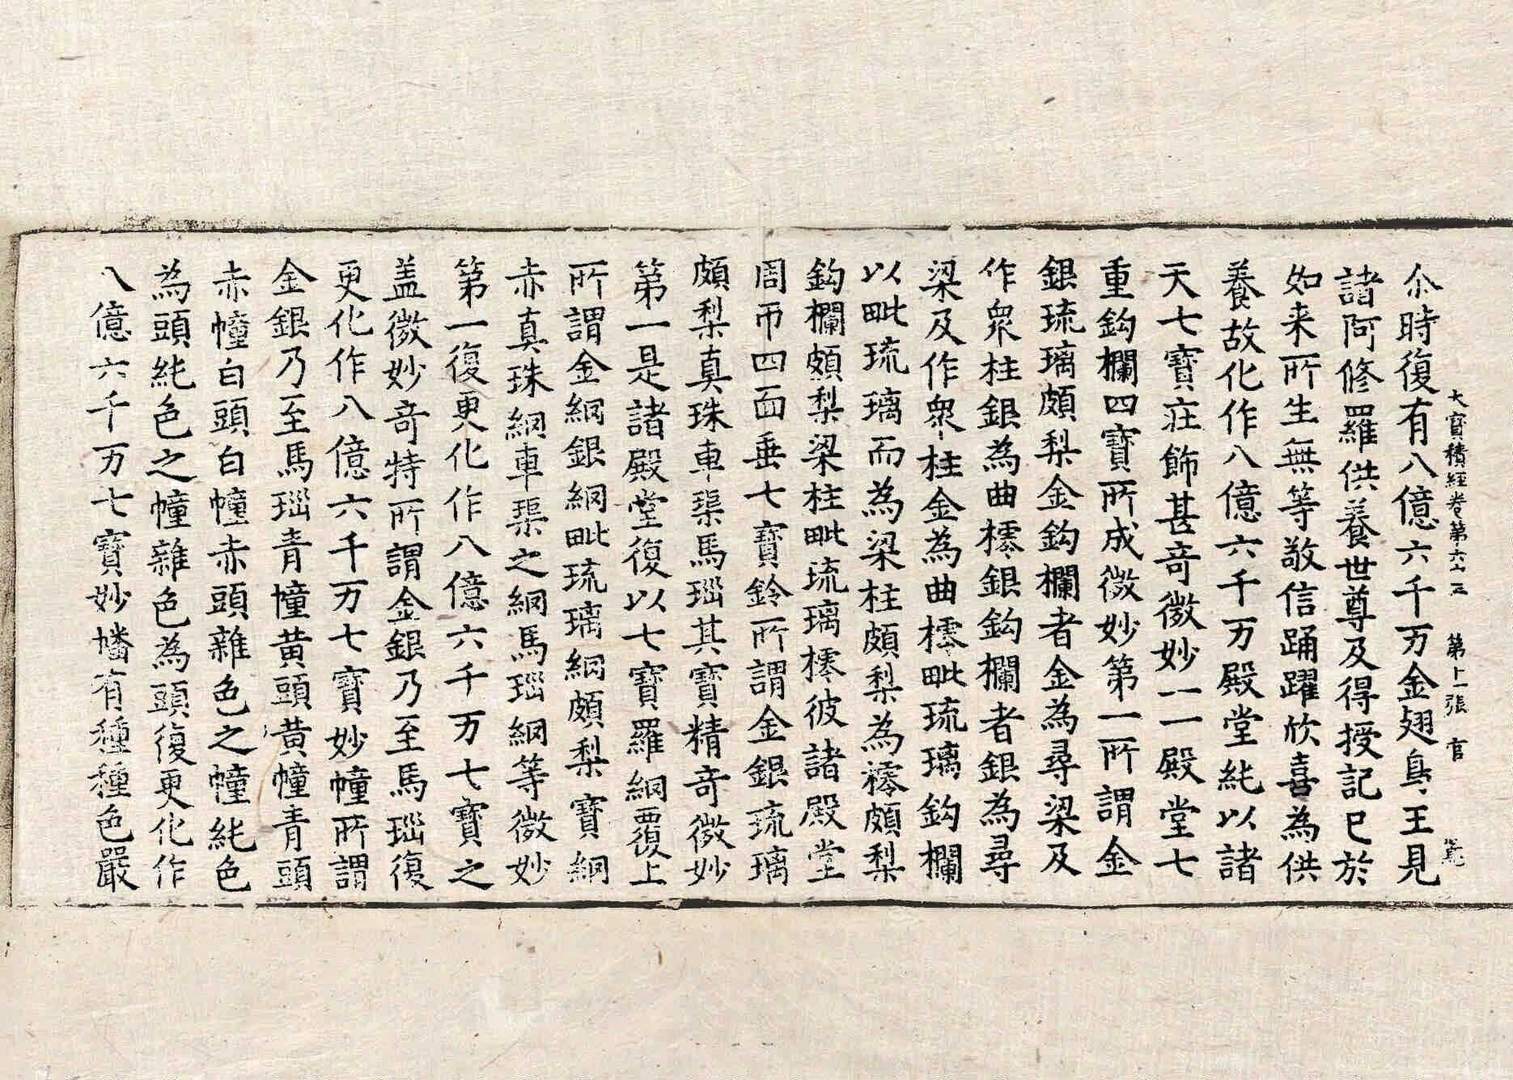 大寶積經卷第六十三 第十一張 官
尒時復有八億六千万金翅鳥王見
諸阿修羅供養世尊及得授記已於
如来所生無等敬信踊躍欣喜為供
養故化作八億六千万殿堂純以諸
天七寶莊飾甚竒微妙一一殿堂七
重鈎欄四寶所成微妙第一所謂金
銀琉璃頗梨金鈎欄者金為尋梁及
作衆柱銀為曲櫺銀鈎欄者銀為尋
梁及作衆柱金為曲櫺毗琉璃鈎欄
以毗琉璃而為梁柱頗梨為櫺頗梨
鈎欄頗梨梁柱毗琉璃櫺彼諸殿堂
周帀四面垂七寶鈴所謂金銀琉璃
頗梨真珠車渠馬瑙其寶精竒微妙
第一是諸殿堂復以七寶羅網覆上
所謂金網銀網毗琉璃網頗梨寶網
赤真珠網車渠之網馬瑙網等微妙
第一復更化作八億六千万七寶之
盖微妙竒特所謂金銀乃至馬瑙復
更化作八億六千万七寶妙幢所謂
金銀乃至馬瑙青幢黄頭黄幢青頭
赤幢白頭白幢赤頭雜色之幢純色
為頭純色之幢雜色為頭復更化作
八億六千万七寶妙幡有種種色嚴